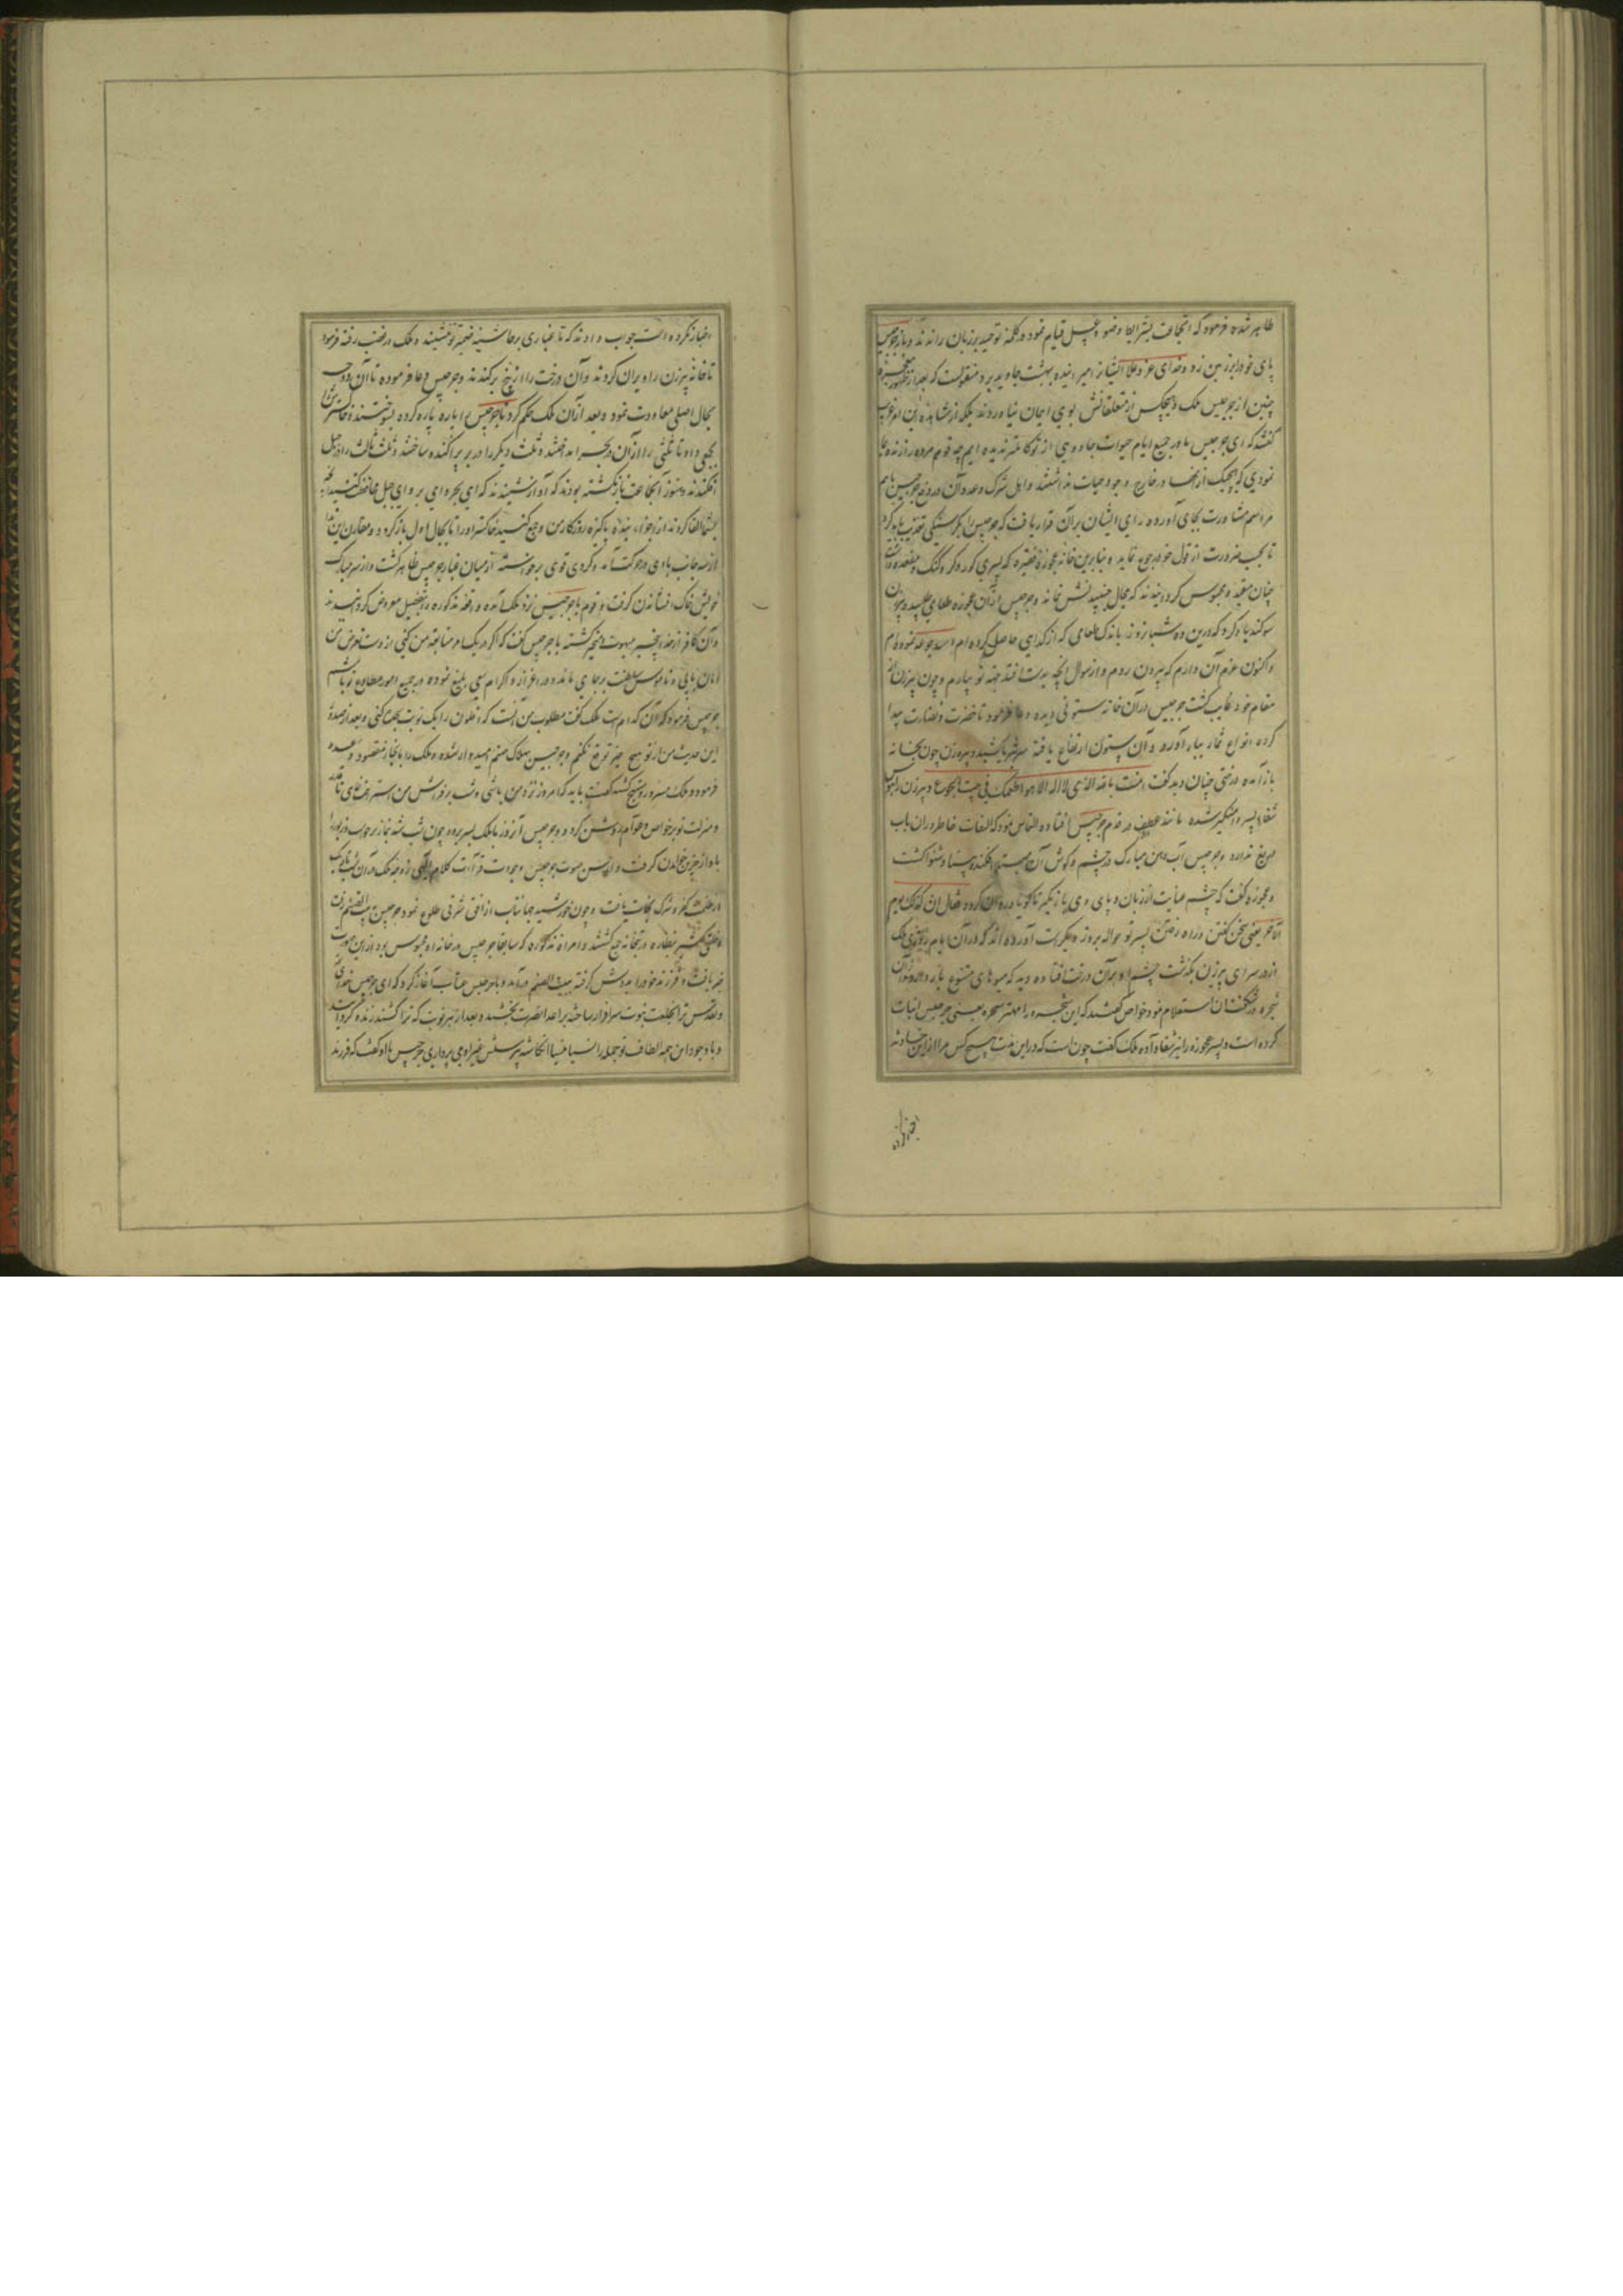 ظاهر شده فرمود که آنجماعت بشرایط وضو و غسل قیام نموده کلمه توحید بر زبان راندند و باز جرجیس
پای خود را بر زمین زد و خدای عز و علا ایشانرا میرانیده بهشت جاوید برد منقولست که بعد از ظهور معجزه
چنین از جرجیس ملک و هیچکس از متعلقانش بوی ایمان نیاوردند بلکه از مشاهده این امر غریب
گفتند که ای جرجیس ما در جمیع ایام حیوات جادویی از تو کاملتر ندیده ایم چه قوم مرده را زنده بما
نمودی که هیچیک از آنها در خارج وجود حیات نداشتند و اهل شرک و عدوان در وی جرجیس باهم
مراسم مشاورت بجای آورده رای ایشان بر آن قرار یافت که جرجیس را بگرسنگی تعذیب باید کرد
تا بحسب ضرورت از قول خود رجوع نماید و بنابرین خانه عجوزه فقیره که پسری کور و کر و گنگ و مقعد داشت
چنان مقید و محبوس گردانیدند که مجال جنبیدنش نماند و جرجیس از آن عجوزه طعامی طلبید و پیرزن
سوگند یاد کرد که درین ده شبانروز باندک طعامی که از گدایی حاصل کرده ام سد جوعه نموده ام
و اکنون عزم آن دارم که بیرون روم و از سوال آنچه بدست افتد جهة تو بیارم و چون پیرزن از
مقام خود غایب گشت جرجیس در آن خانه ستونی دیده دعا فرمود تا خضرت و نضارت پیدا
کرده انواع ثمار ببار آورد و آن ستون ارتفاع یافته سر بثریا کشید و پیرزن چون بخانه
باز آمده درختی چنان دید گفت امنت بالله الذی لا اله الا هو اطعمک فی بیت الجوع و پیرزن را هوس
شفای پسر دامنگیر شده مانند عطف در قدم جرجیس افتاده التماس نمود که التفات خاطر در ان باب
دریغ ندارد و جرجیس آب دهن مبارک در چشم و گوش آن مبتلا افکنده بینا و شنوا گشت
و عجوزه گفت که چشم عنایت از زبان و پای وی باز نگیر تا گویا و روان گردد فقال ان کذلک یوم
آخر یعنی سخن گفتن و راه رفتن پسر تو حواله بروز دیگرست آورده اند که در آن ایام روزی ملک
از در سرای پیرزن بگذشت چشم او بر آن درخت افتاده دید که میوهای متنوع بار دارد از آن
شجره در شگفت شان استعلام نمود خواص گفتند که این شجره را مهتر سحره یعنی جرجیس انبات
کرده است و پسر عجوزه را نیز شفا داده ملک گفت چونست که در این مدت هیچ کس مرا ازین حادثه
اخبار نکرده
اخبار نکرده است جواب دادند که تا غباری بر حاشیه ضمیر تو ننشیند و ملک در غضب رفته فرمود
تا خانه پیرزن را ویران کردند و آن درخت را از بیخ برکندند و جرجیس دعا فرموده تا آن درخت
بحال اصلی معاودت نمود و بعد از آن ملک حکم کرد تا جرجیس را پاره پاره کرده بسوختند و خاکسترش را
بجمعی داد تا ثلثی را از آن در بحر انداختند و ثلث دیگر را در بر پراکنده ساختند و ثلث ثالث را در جبل
افکندند و هنوز آنجماعت بازنگشته بودند که آواز شنیدند که ای بحر و ای بر و ای جبل محافظت کنید آنچه
بشما القا کردند از اجزاء بنده پاکیزه روزگار من و جمع کنید خاکستر او را تا بحال اول باز گردد و مقارن این ندا
از سه جانب بادی در حرکت آمد و گردی قوی برخواسته از میان غبار جرجیس ظاهر گشت و از سر مبارک
خویش خاک افشاندن گرفت و قوم با جرجیس نزد ملک آمده واقعه مذکوره را بتفصیل معروض گردانیدند
و آن کافر از خدا بیخبر مبهوت و متحیر گشته با جرجیس گفت که اگر در یک امر متابعت من کنی از دست تعرض من
امان یابی و ناموس سلطنت برجای ماند و در اعزاز و اکرام سعی بلیغ نموده در جمیع امور مطاوع تو باشم
جرجیس فرمود که آن کدام است ملک گفت مطلوب من آنست که افلون را یک نوبت سجده کنی و بعد از صدور
این حدیث من از تو هیچ چیز توقع نکنم و جرجیس بهلاک صنم امیدوار شده و ملک را بانجاز مقصود وعده
فرمود و ملک مسرور و مبتهج گشته گفت باید که امروز نزد من باشی و شب بر فراش من استراحت نمای تا قدر
و منزلت تو بر خواص و عوام روشن گردد و جرجیس آنروز با ملک بسر برده چون شب شد نماز برخواست و زبور را
باواز حزین خواندن گرفت و از حسن صوت جرجیس وجودت قرآءت کلام الهی زوجه ملک در آن شب تاریک
از ظلمت کفر و شرک نجات یافت و چون خورشید جهانتاب از افق شرقی طلوع نمود جرجیس به بیت الصنم رفت
و خلقی کثیر بنظاره در بتخانه جمع گشتند و امراه مذکوره که سابقا جرجیس در خانه او محبوس بود از این صورت
خبر یافت و فرزند خود را بدوش گرفته ببیت الصنم درآمد و با جرجیس عتاب آغاز کرد که ای جرجیس خدای
و تقدس ترا بخلعت نبوت سرافراز ساخته بر اعدا نصرت بخشید و بعد از هر نوبت که ترا کشتند زنده گردانید
و با وجود این همه الطاف تو جمله را نسیا منسیا انگاشته پرستش غیر او می پردازی جرجیس با او گفت که فرزند